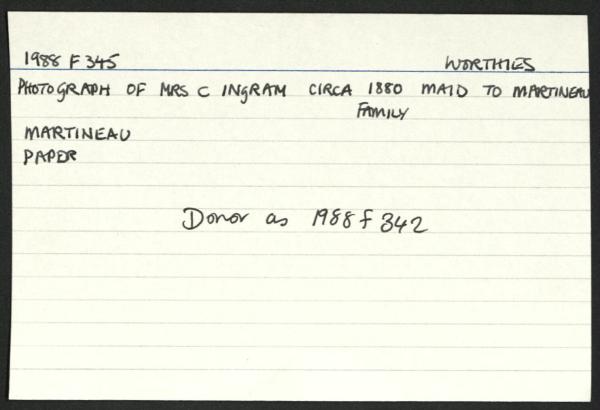 1988 F 345 WORTHIES
PHOTOGRAPH OF MRS C INGRAM CIRCA 1880 MAID TO MARTINEAU
FAMILY
MARTINEAU
PAPER
Donor as 1988 f 342